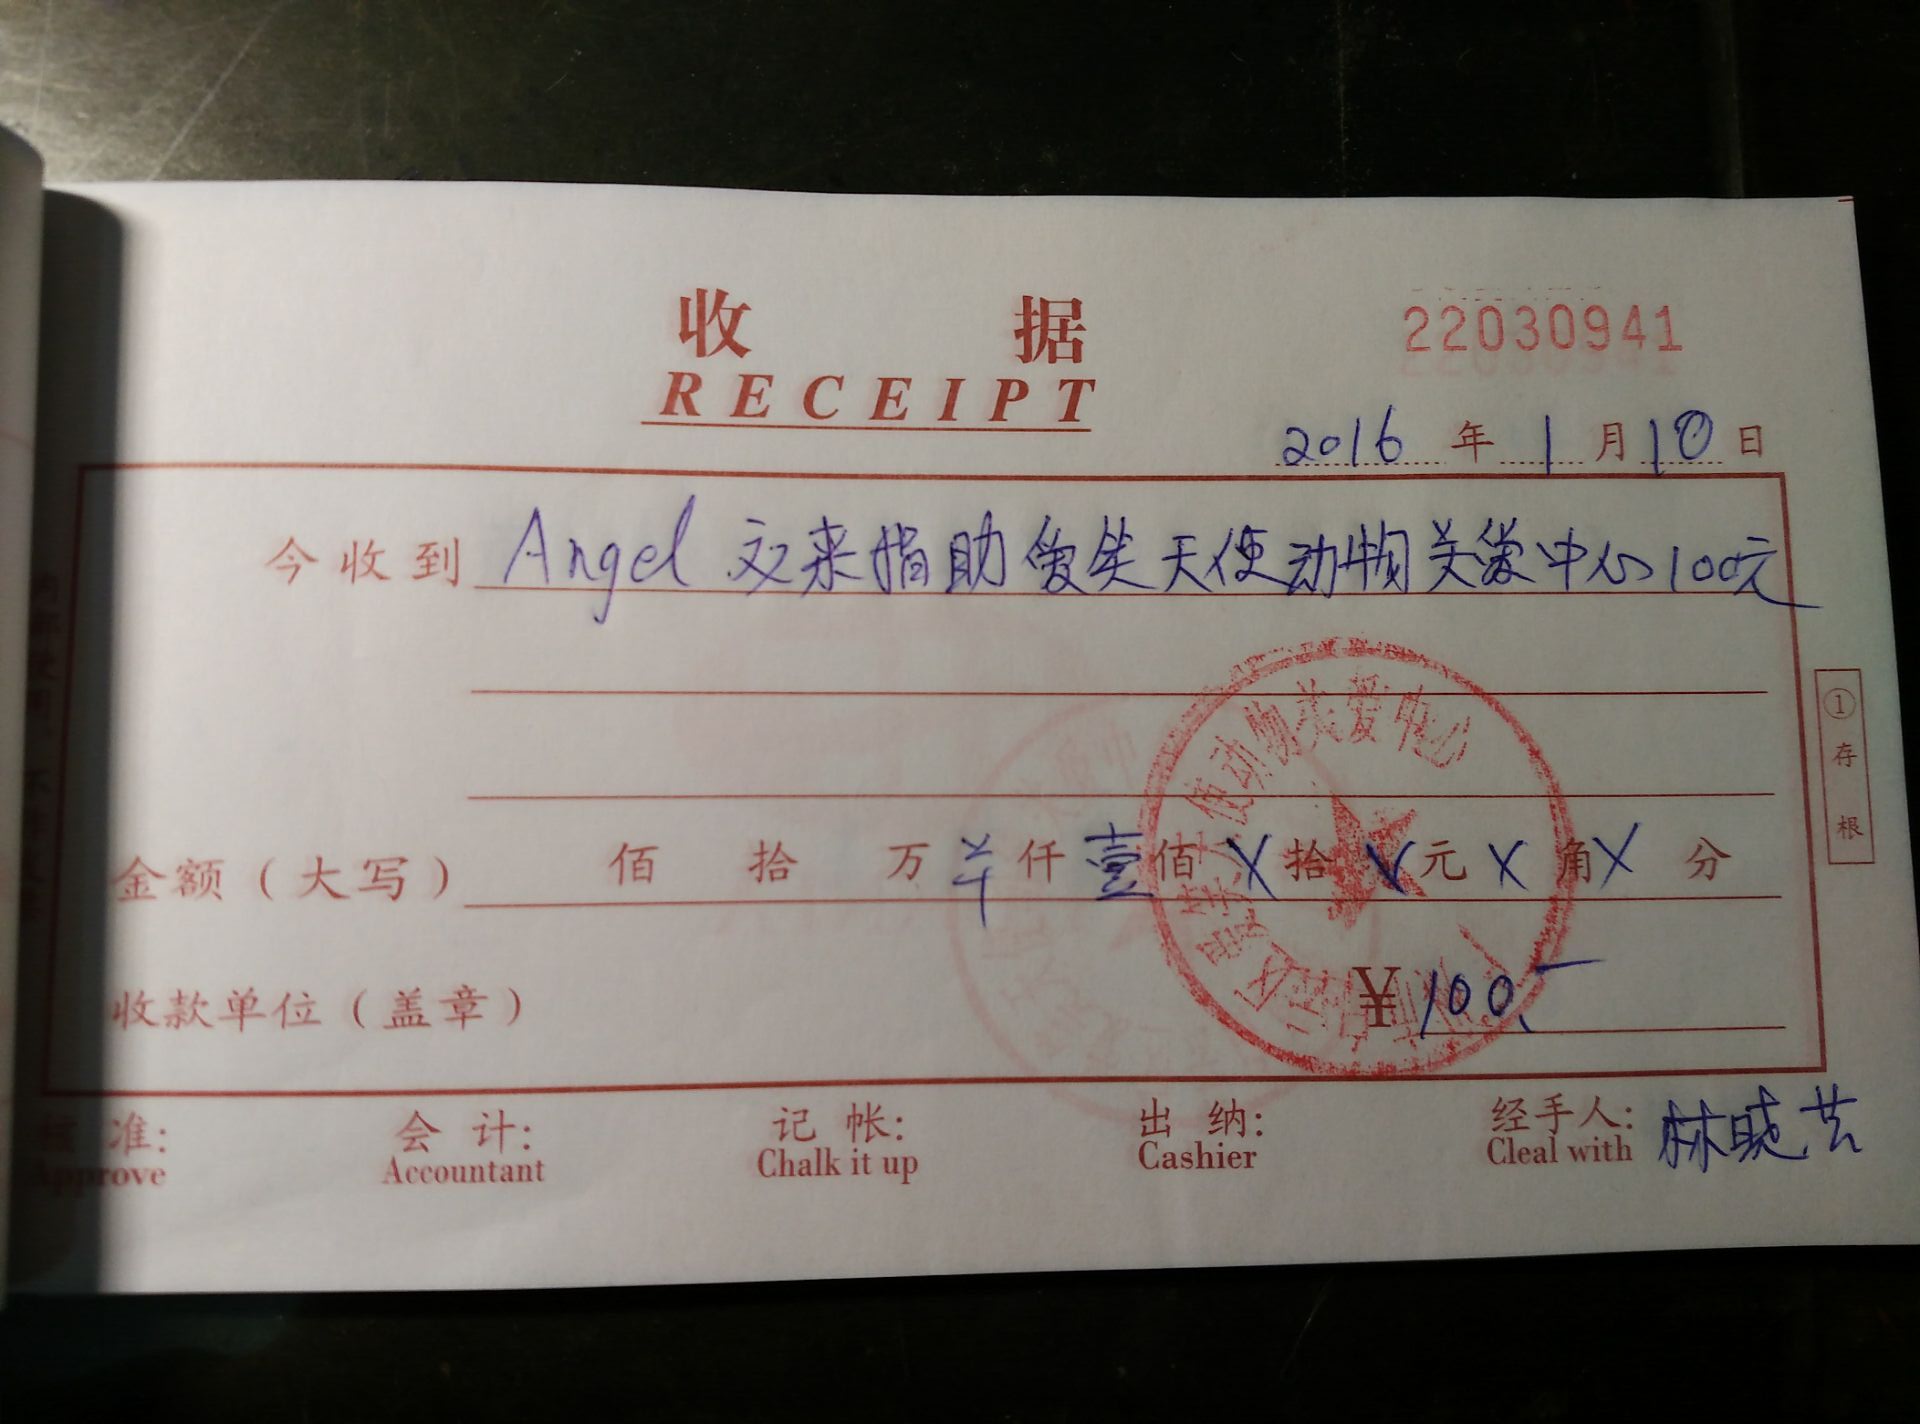 收 据
RECEIPT
22030941
2016 年 1 月 10 日
今收到 Angel 文来捐助爱笑天使动物关爱中心100元
金额(大写) 佰 拾 万 ¥ 仟 壹 佰 X 拾 X 元 X 角 X 分
收款单位(盖章) ¥ 100.-
使动物关爱中心
① 存根
准: 会 计: 记 帐: 出 纳: 经手人: 林晓芸
Approve Accountant Chalk it up Cashier Cleal with